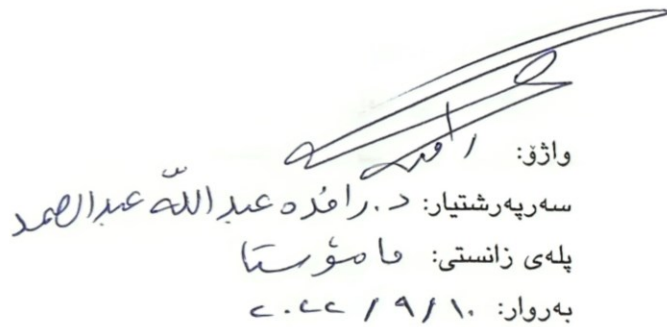 واژۆ:
سەرپەرشتیار: د. رافده عبدالله عبدالصمد
پلەی زانستی: مامۆستا
بەروار: ٢٠٢٢ / ٩ / ١٠